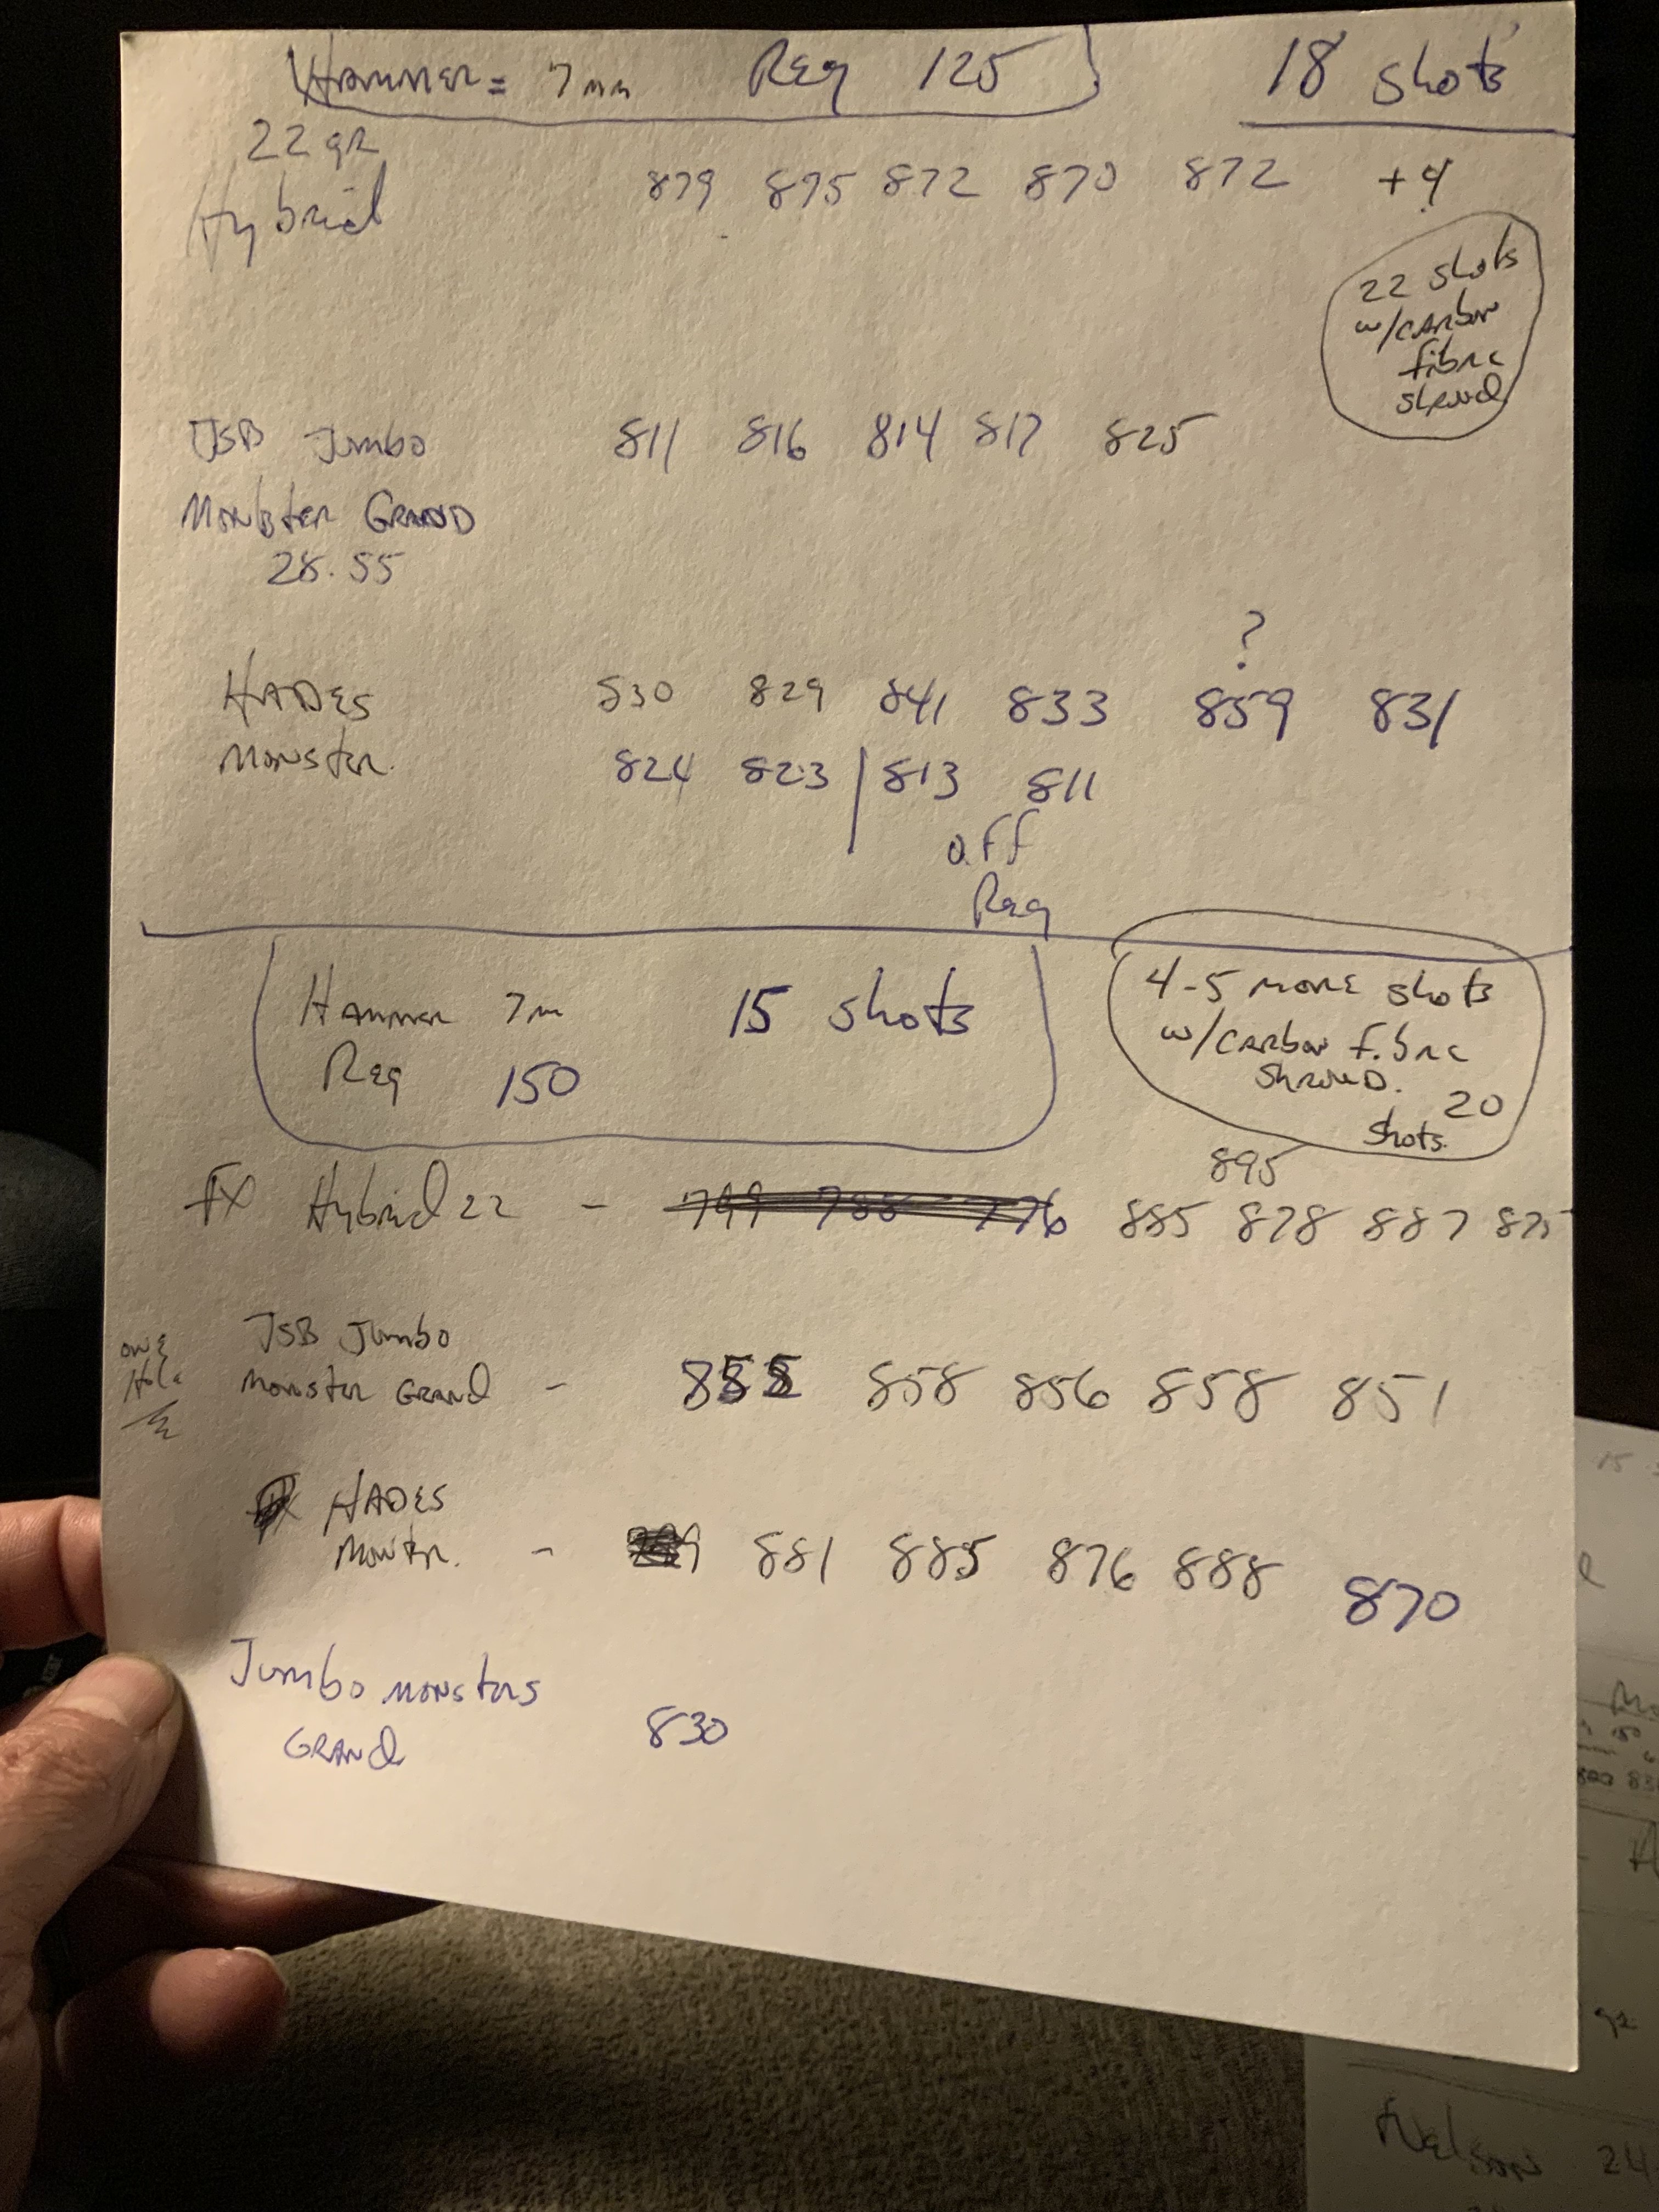 HAMMER = 7mm Reg 125 18 shots
22 gr
Hybrid 879 875 872 870 872 +4
22 shots
w/carbon
fibre
shroud
JSB Jumbo 811 816 814 817 825
Monster Grand
28.55
?
HADES 830 829 841 833 859 831
Monster. 824 823 | 813 811
off
Reg
Hammer 7m 15 shots
Reg 150
4-5 more shots
w/carbon fibre
shroud. 20
shots.
895
FX Hybrid 22 - 799 788 776 885 878 887 875
one
Hole
JSB Jumbo
Monster Grand - 855 858 856 858 851
HADES
Monster. - 881 885 876 888 870
Jumbo Monsters
Grand 830
15
150
800 83
gr
Nelson 24